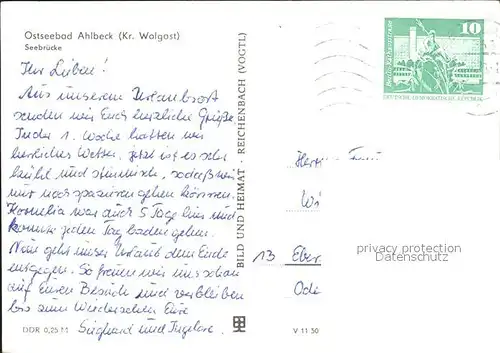 Ostseebad Ahlbeck (Kr. Wolgast)
Seebrücke
Ihr Lieben!
Aus unserem Urlaubsort
senden wir Euch herzliche Grüße.
In der 1. Woche hatten wir
herrliches Wetter, jetzt ist es sehr
kühl und stürmisch, sodaß wir
nur noch spazieren gehen können.
Kornelia war auch 5 Tage hier und
konnte jeden Tag baden gehen.
Nun geht unser Urlaub dem Ende
entgegen. So freuen wir uns schon
auf Euren Besuch und verbleiben
bis zum Wiedersehen Eure
Sieghard und Ingelore.
DDR 0,25 M
BILD UND HEIMAT · REICHENBACH (VOGTL)
V 11 50
10
Berlin, Rathausstraße
DEUTSCHE DEMOKRATISCHE REPUBLIK
Wi
13 Eber
Ode
privacy protection
Datenschutz